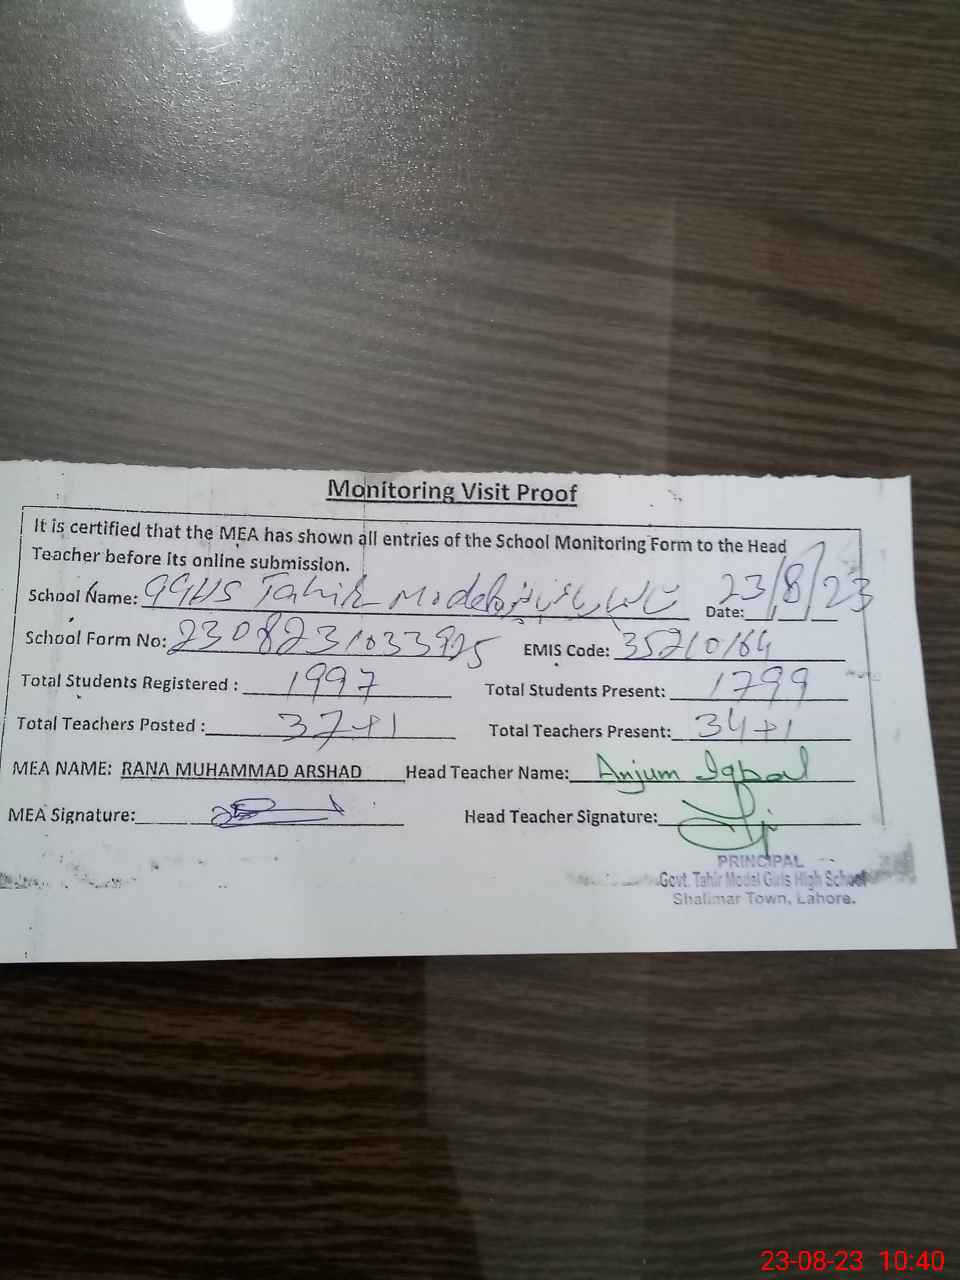 Monitoring Visit Proof
It is certified that the MEA has shown all entries of the School Monitoring Form to the Head
Teacher before its online submission.
School Name: GGHS Tahir Model Date: 23/8/23
School Form No: EMIS Code: 35210164
Total Students Registered : 1997 Total Students Present: 1799
Total Teachers Posted : 37+1 Total Teachers Present: 34+1
MEA NAME: RANA MUHAMMAD ARSHAD Head Teacher Name: Anjum Iqbal
MEA Signature: Head Teacher Signature:
PRINCIPAL
Govt. Tahir Model Girls High School
Shalimar Town, Lahore.
23-08-23 10:40